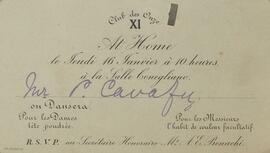 Club des Onze
XI
At Home
le Jeudi 16 Janvier à 10 heures,
à la Salle Conegliano.
Mr P. Cavafy
on Dansera.
Pour les Dames
tête poudrée.
Pour les Messieurs
l'habit de couleur facultatif.
R.S.V.P. au Secrétaire Honoraire Mr A. E.